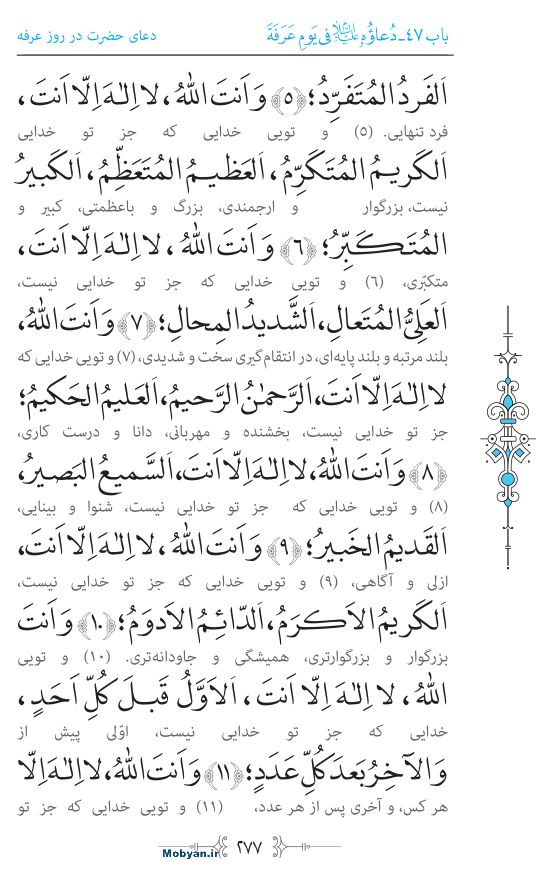 باب ٤٧ـ دُعاؤُهُ علیه‌السلام فی یَومِ عَرَفَةَ
دعای حضرت در روز عرفه
اَلفَردُ المُتَفَرِّدُ؛ ﴿٥﴾ وَ اَنتَ اللّٰهُ، لا اِلٰهَ اِلّا اَنتَ،
فرد تنهایی. (۵) و تویی خدایی که جز تو خدایی
اَلکَریمُ المُتَکَرِّمُ، اَلعَظیمُ المُتَعَظِّمُ، اَلکَبیرُ
نیست، بزرگوار و ارجمندی، بزرگ و باعظمتی، کبیر و
المُتَکَبِّرُ؛ ﴿٦﴾ وَ اَنتَ اللّٰهُ، لا اِلٰهَ اِلّا اَنتَ،
متکبّری، (۶) و تویی خدایی که جز تو خدایی نیست،
اَلعَلِیُّ المُتَعالِ، اَلشَّدیدُ المِحالِ؛ ﴿٧﴾ وَ اَنتَ اللّٰهُ،
بلند مرتبه و بلند پایه‌ای، در انتقام‌گیری سخت و شدیدی، (۷) و تویی خدایی که
لا اِلٰهَ اِلّا اَنتَ، اَلرَّحمٰنُ الرَّحیمُ، اَلعَلیمُ الحَکیمُ؛
جز تو خدایی نیست، بخشنده و مهربانی، دانا و درست کاری،
﴿٨﴾ وَ اَنتَ اللّٰهُ، لا اِلٰهَ اِلّا اَنتَ، اَلسَّمیعُ البَصیرُ،
(۸) و تویی خدایی که جز تو خدایی نیست، شنوا و بینایی،
اَلقَدیمُ الخَبیرُ؛ ﴿٩﴾ وَ اَنتَ اللّٰهُ، لا اِلٰهَ اِلّا اَنتَ،
ازلی و آگاهی، (۹) و تویی خدایی که جز تو خدایی نیست،
اَلکَریمُ الاَکرَمُ، اَلدّائِمُ الاَدوَمُ؛ ﴿١٠﴾ وَ اَنتَ
بزرگوار و بزرگوارتری، همیشگی و جاودانه‌تری. (۱۰) و تویی
اللّٰهُ، لا اِلٰهَ اِلّا اَنتَ، اَلاَوَّلُ قَبلَ کُلِّ اَحَدٍ،
خدایی که جز تو خدایی نیست، اوّلی پیش از
وَ الآخِرُ بَعدَ کُلِّ عَدَدٍ؛ ﴿١١﴾ وَ اَنتَ اللّٰهُ، لا اِلٰهَ اِلّا
هر کس، و آخری پس از هر عدد، (۱۱) و تویی خدایی که جز تو
٢٧٧
Mobyan.ir